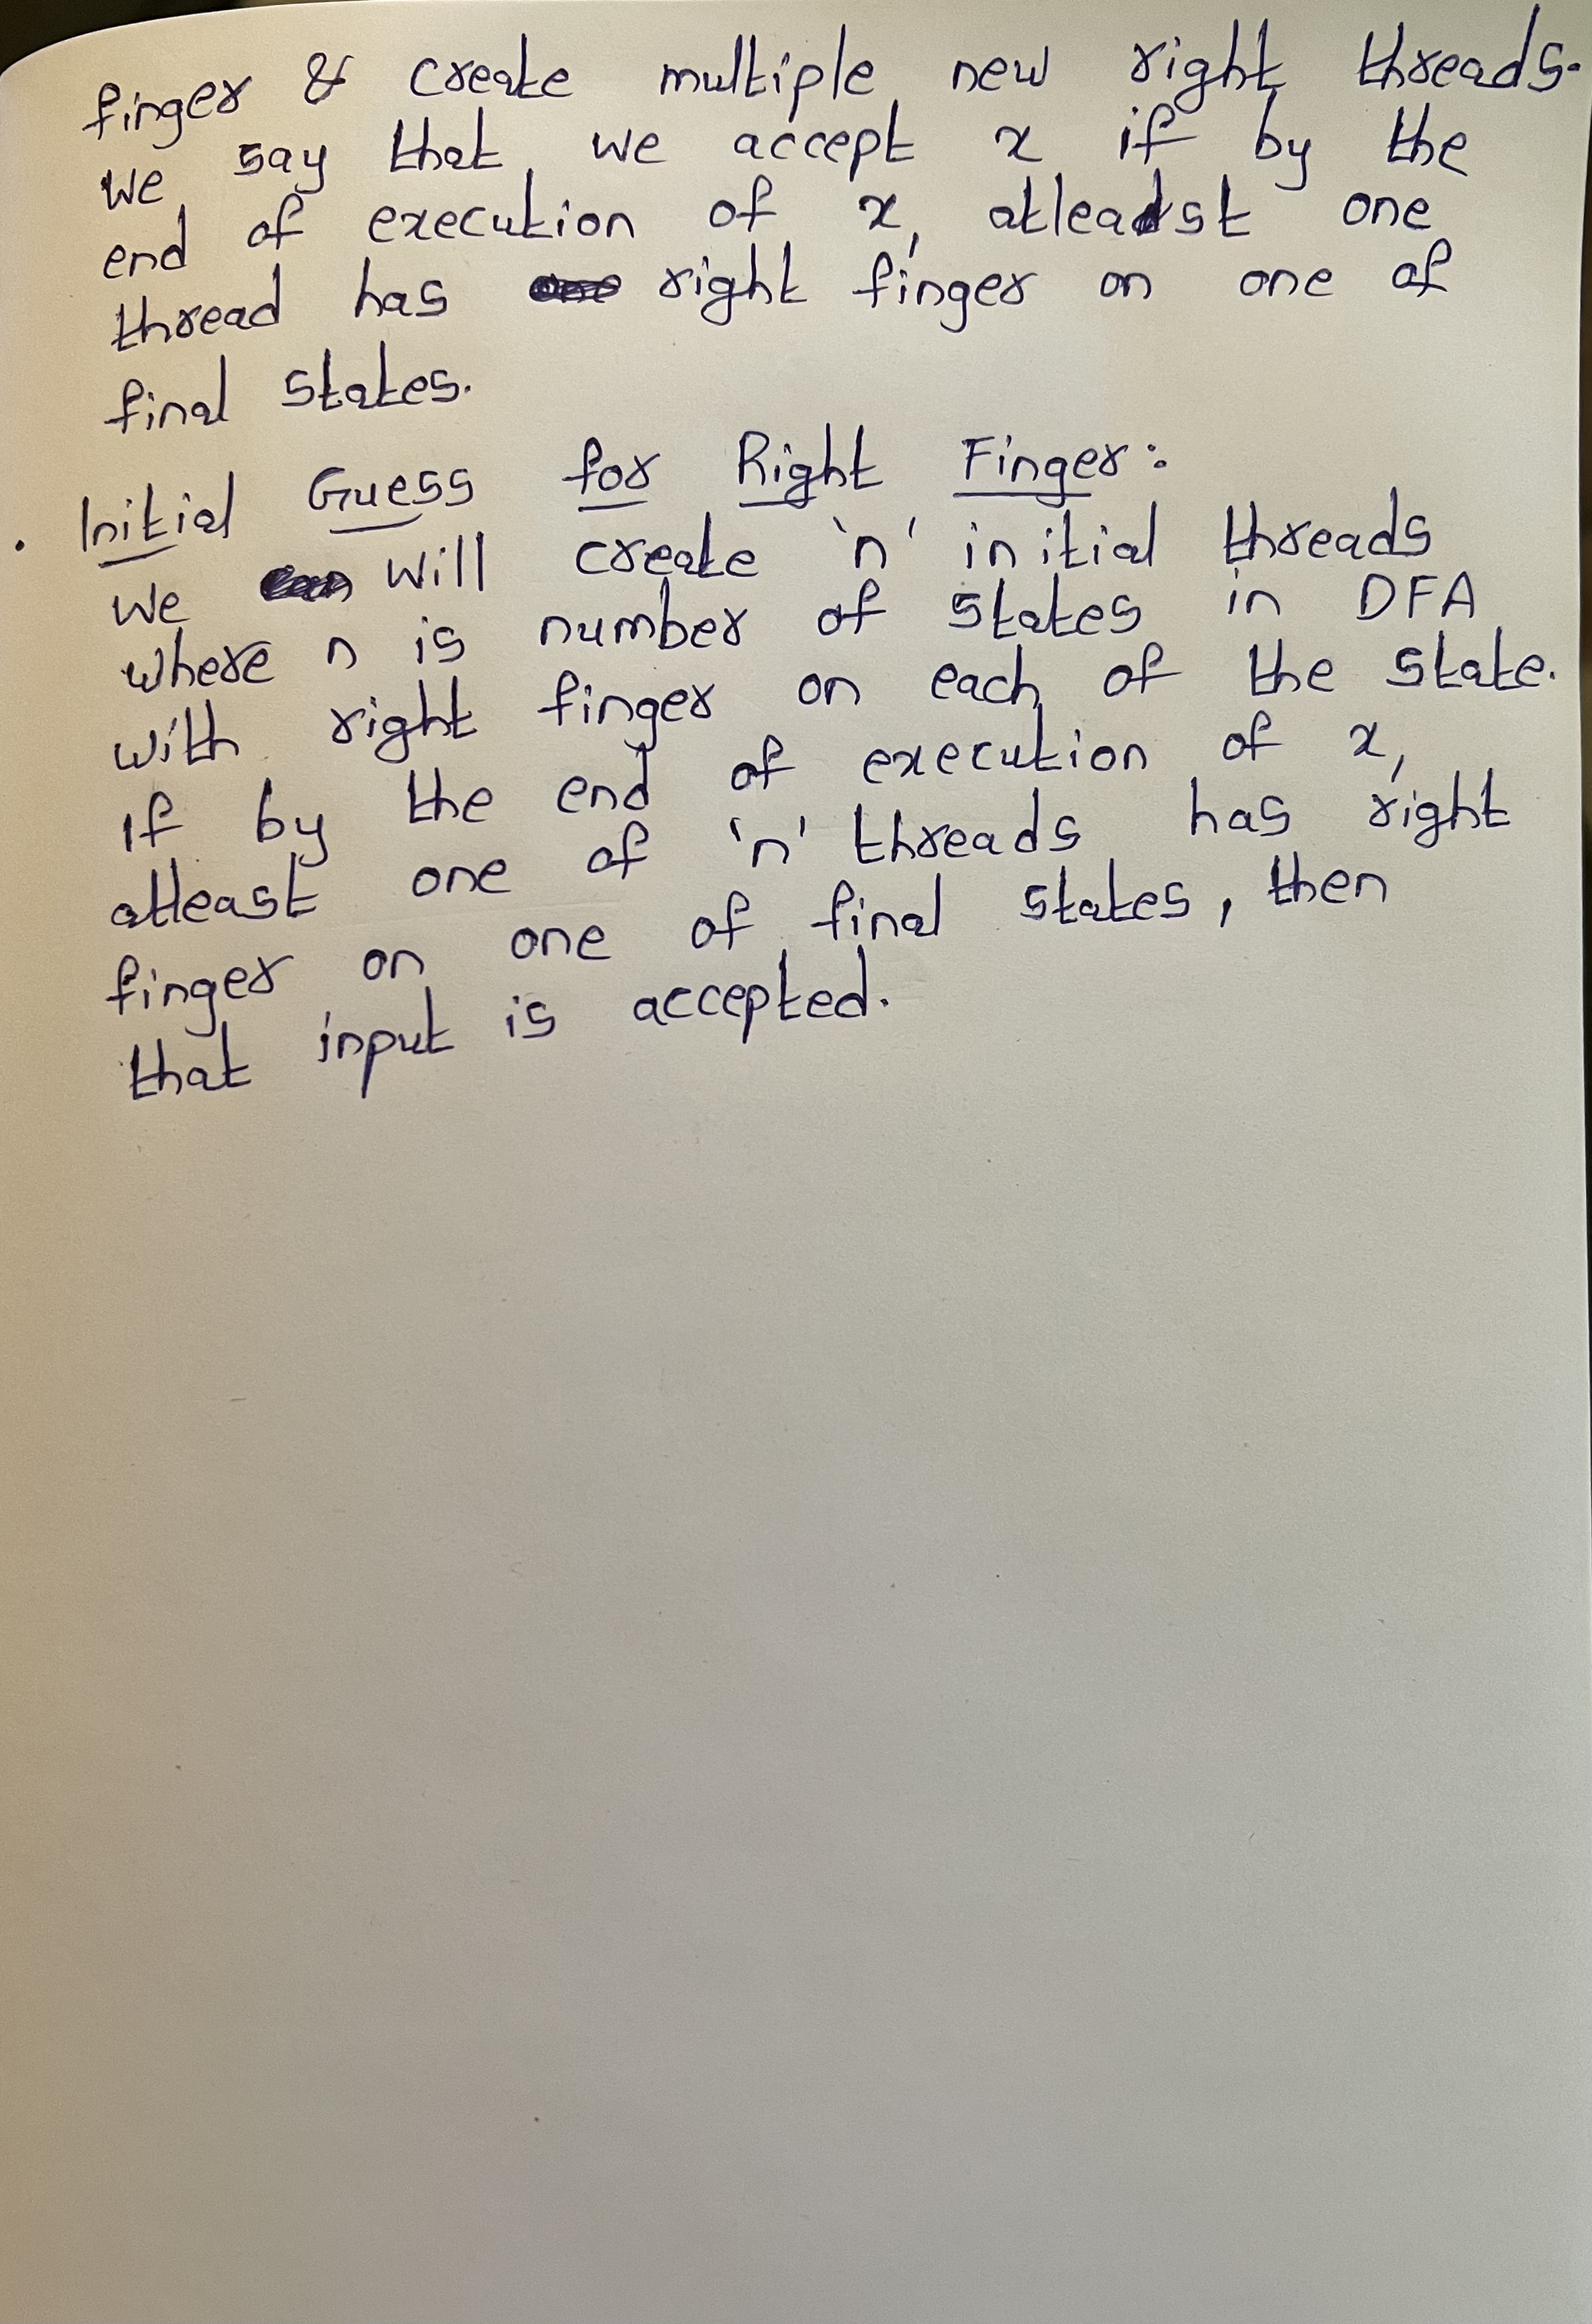 finger & create multiple new right threads.
we say that we accept x if by the
end of execution of x, atleast one
thread has right finger on one of
final states.
. Initial Guess for Right Finger:
we will create 'n' initial threads
where n is number of states in DFA
with right finger on each of the state.
If by the end of execution of x,
atleast one of 'n' threads has right
finger on one of final states, then
that input is accepted.